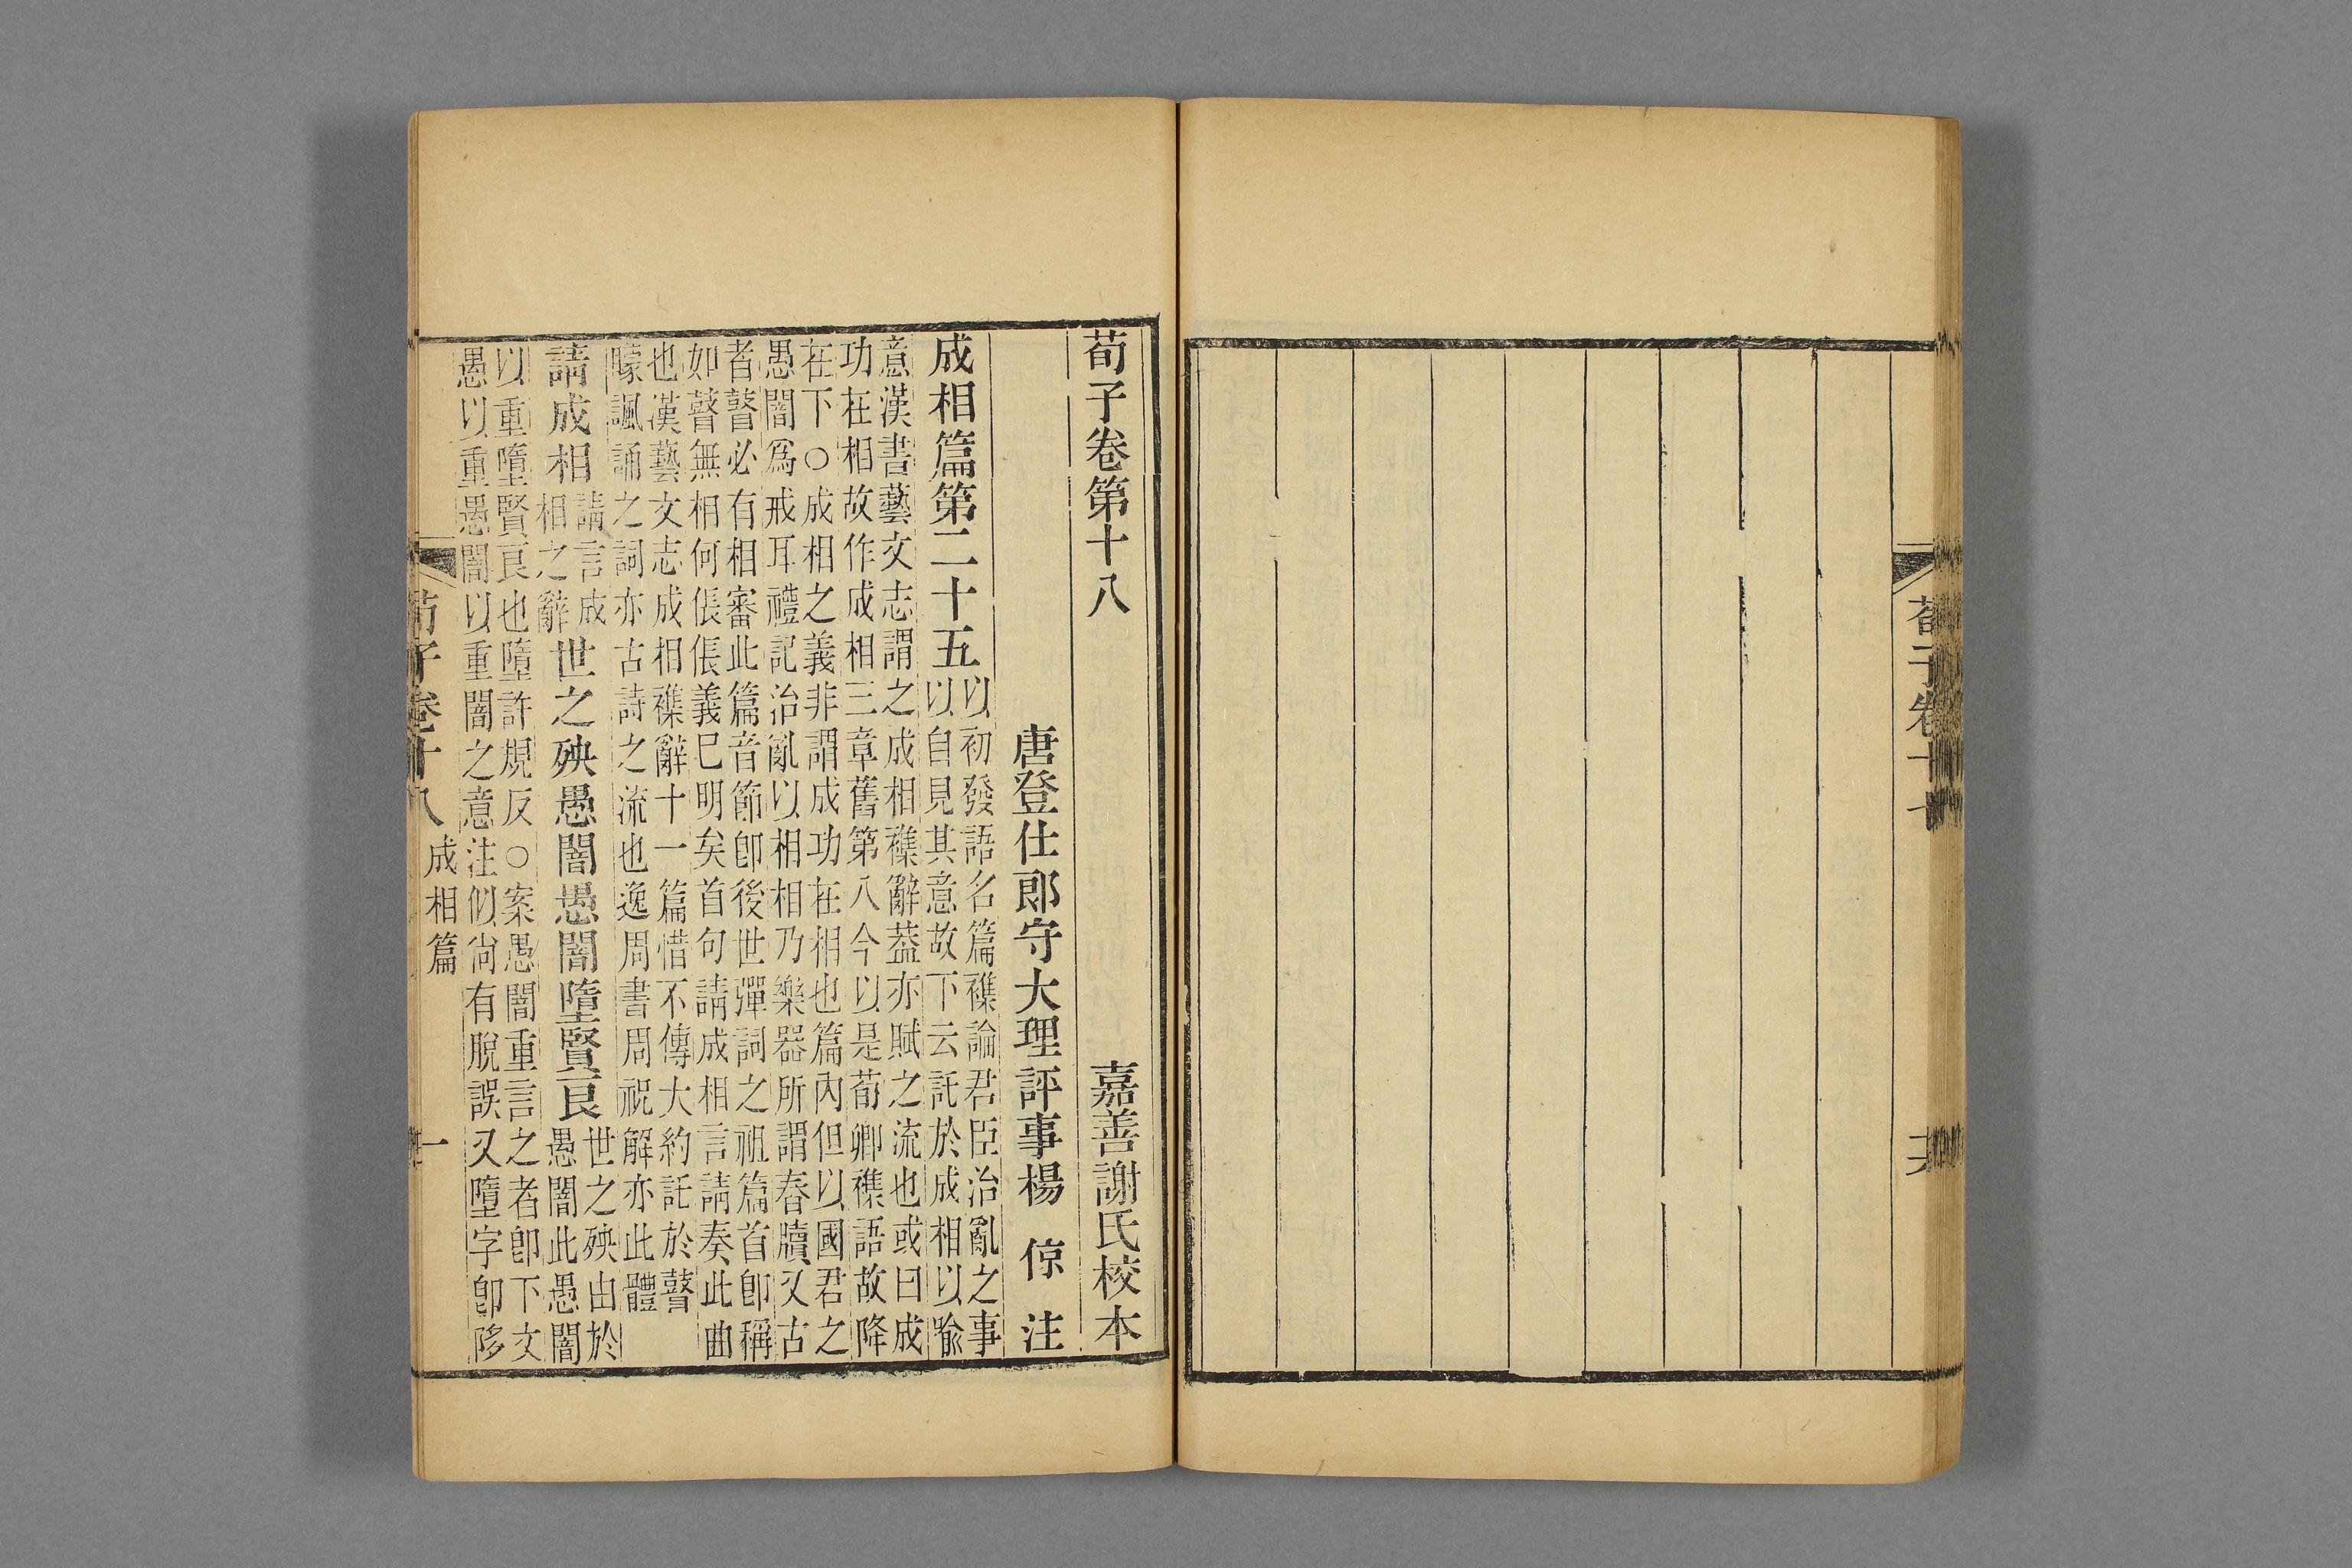 荀子卷十七
荀子卷第十八　嘉善謝氏校本
唐登仕郎守大理評事楊　倞　注
成相篇第二十五
以初發語名篇襍論君臣治亂之事
以自見其意故下云託於成相以喻
意漢書藝文志謂之成相襍辭葢亦賦之流也或曰成
功在相故作成相三章舊第八今以是荀卿襍語故降
在下○成相之義非謂成功在相也篇內但以國君之
愚闇爲戒耳禮記治亂以相相乃樂器所謂舂牘又古
者瞽必有相審此篇音節卽後世彈詞之祖篇首卽稱
如瞽無相何倀倀義已明矣首句請成相言請奏此曲
也漢藝文志成相襍辭十一篇惜不傳大約託於瞽
矇諷誦之詞亦古詩之流也逸周書周祝解亦此體
請成相
請言成
相之辭
世之殃愚闇愚闇墮賢良
世之殃由於
愚闇此愚闇
以重墮賢良也墮許規反○案愚闇重言之者卽下文
愚以重愚闇以重闇之意注似尙有脫誤又墮字卽陊
荀子卷十八　成相篇　一